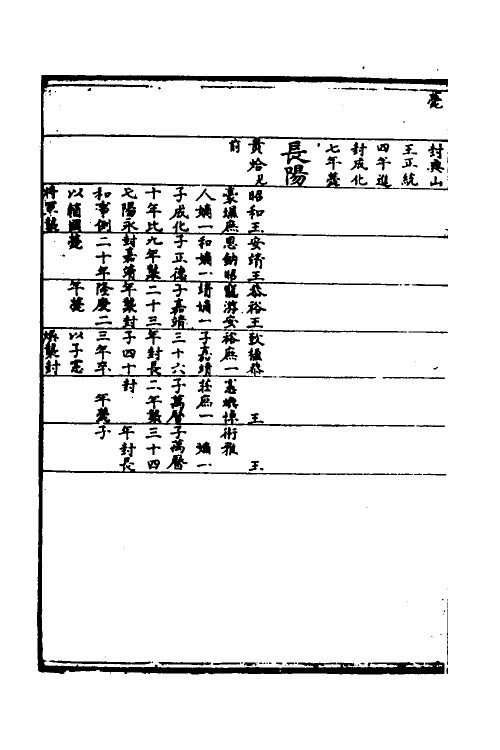 薨
封興山
王正統
四年進
封成化
七年薨
長陽
貴烚見
前
昭和王
豪壏庶
人嫡一
子成化
十年比
弋陽永
和事例
以輔國
將軍襲
安靖王
恩鈉昭
和嫡一
子正德
九年襲
封嘉靖
二十年
薨
恭裕王
寵游安
靖嫡一
子嘉靖
二十三
年襲封
隆慶二
年薨
致橿恭
裕庶一
子嘉靖
三十六
年封長
子四十
三年卒
以子憲
襲封
王
憲悼
莊庶一
子萬曆
二年襲
封
年薨
王
術雅
嫡一
子萬曆
三十四
年封長
子